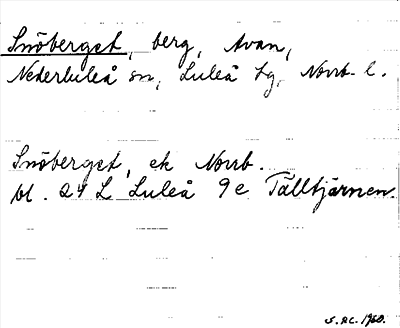 Snöberget, berg, Avan,
Nederluleå sn, Luleå tg, Norrb. l.
Snöberget, ek Norrb.
bl. 24 L Luleå 9e Tälltjärnen.
S. AC. 1960.